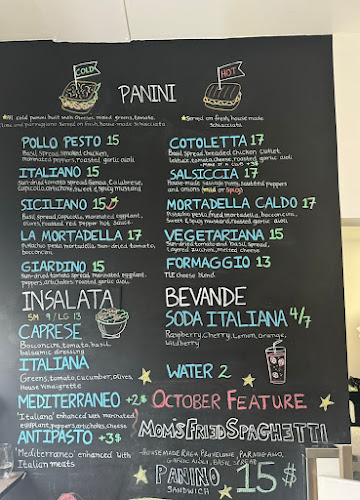 COLD
HOT
PANINI
All cold panini built with Cheeses, mixed greens, tomato,
and parmeggiano Served on fresh, house made Schiacciata
Served on fresh, house made
Schiacciata
POLLO PESTO 15
Basil spread, smoked chicken,
marinated peppers, roasted garlic aioli
ITALIANO 15
Sun-dried tomato spread, Genoa, Calabrese,
Capicollo, artichoke, sweet & spicy mustard
SICILIANO 15
Basil spread, capicollo, marinated eggplant,
olives, roasted red pepper hot sauce
LA MORTADELLA 17
Pistachio pesto, mortadella, sun-dried tomato,
bocconcini
GIARDINO 15
Sun-dried tomato spread, marinated eggplant,
peppers, artichokes, roasted garlic aioli
COTOLETTA 17
Basil spread, breaded chicken cutlet,
lettuce, tomato, cheese, roasted garlic aioli
SALSICCIA 17
House-made sausage patty, roasted peppers
and onions (Mild or Spicy)
MORTADELLA CALDO 17
Pistachio pesto, fried mortadella, bocconcini,
Sweet & spicy mustard, roasted garlic aioli
VEGETARIANA 15
Sun-dried tomato and basil spread,
Grilled zucchini, melted cheese
FORMAGGIO 13
TLC cheese blend
INSALATA
SM 9/LG 13
CAPRESE
Bocconcini, tomato, basil
balsamic dressing
ITALIANA
Greens, tomato, cucumber, olives,
House Vinaigrette
MEDITERRANEO +2$
'Italiano' enhanced with marinated
eggplant, peppers, artichokes, cheese
ANTIPASTO +3$
'Mediterraneo' enhanced with
Italian meats
BEVANDE
SODA ITALIANA 4/7
Raspberry, Cherry, Lemon, Orange,
Wildberry
WATER 2
OCTOBER FEATURE
MOM'S FRIED SPAGHETTI
HOUSEMADE RAGU, PROVELONE, PARMIGIANO,
GARLIC AIOLI, BASIL SPREAD
PANINO 15$
SANDWICH